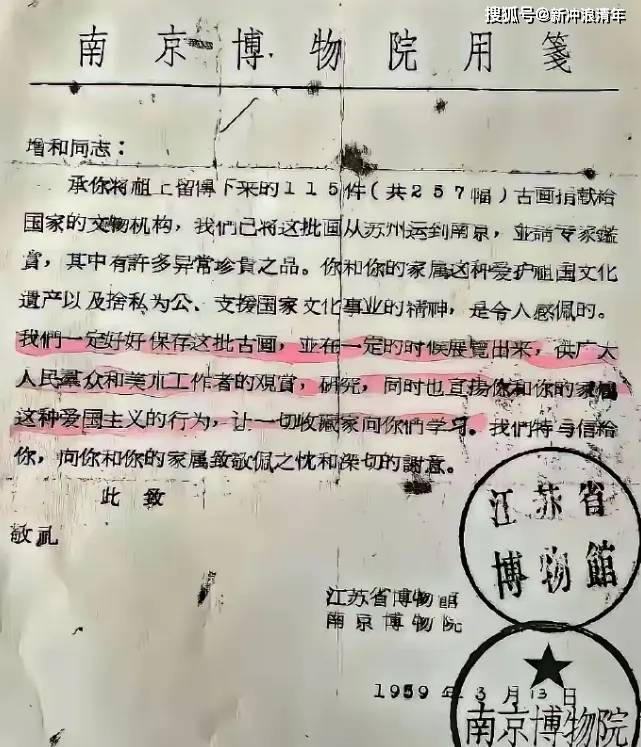 搜狐号@新冲浪清年
南京博物院用箋
增和同志：
承你将祖上留傳下来的115件（共257幅）古画捐献給
国家的文物机构，我們已将这批画从苏州运到南京，並請专家鑑
賞，其中有許多异常珍貴之品。你和你的家属这种爱护祖国文化
遺产以及捨私为公、支援国家文化事业的精神，是令人感佩的。
我們一定好好保存这批古画，並在一定的时候展覽出来，供广大
人民羣众和美朮工作者的观賞，研究，同时也直接你和你的家属
这种爱国主义的行为，让一切收藏家向你們学习。我們特与信給
你，向你和你的家属致敬佩之忱和深切的謝意。
此致
敬礼
江苏省博物館
南京博物院
1959年3月13日
江苏省
博物館
南京博物院